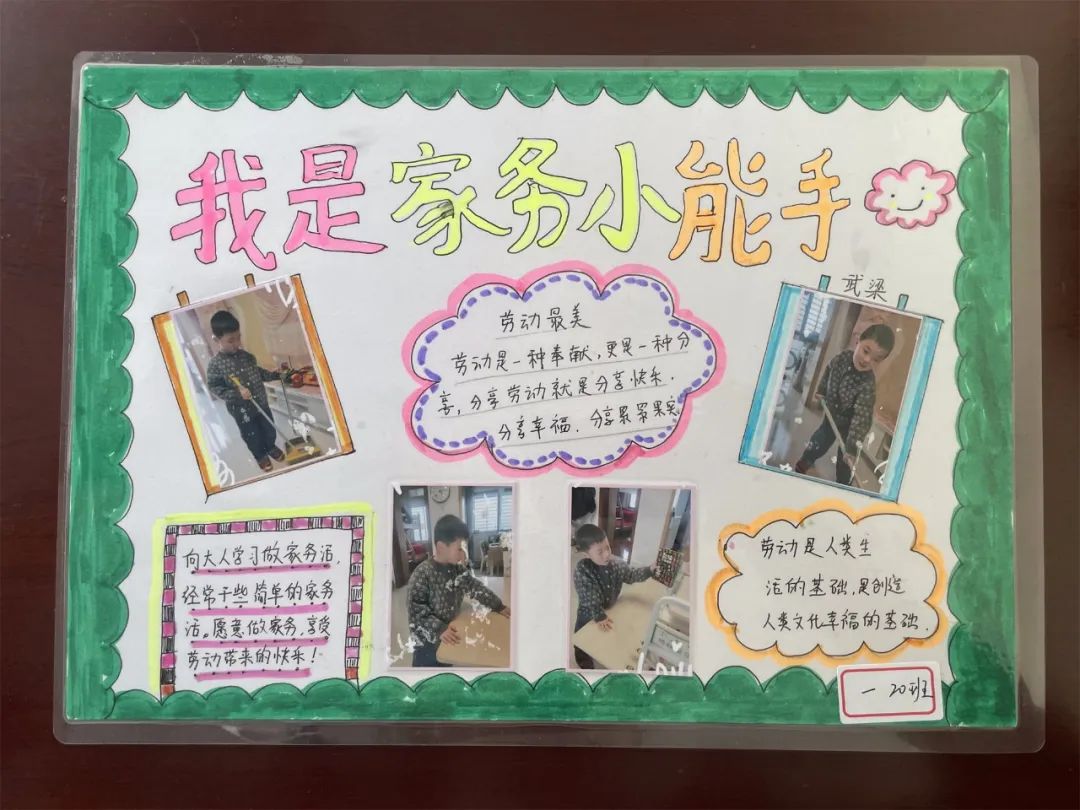 我是家务小能手
武梁
劳动最美
劳动是一种奉献,更是一种分
享,分享劳动就是分享快乐.
分享幸福.分享累累果实
向大人学习做家务活,
经常干些简单的家务
活。愿意做家务,享受
劳动带来的快乐!
劳动是人类生
活的基础,是创造
人类文化幸福的基础.
一 20班